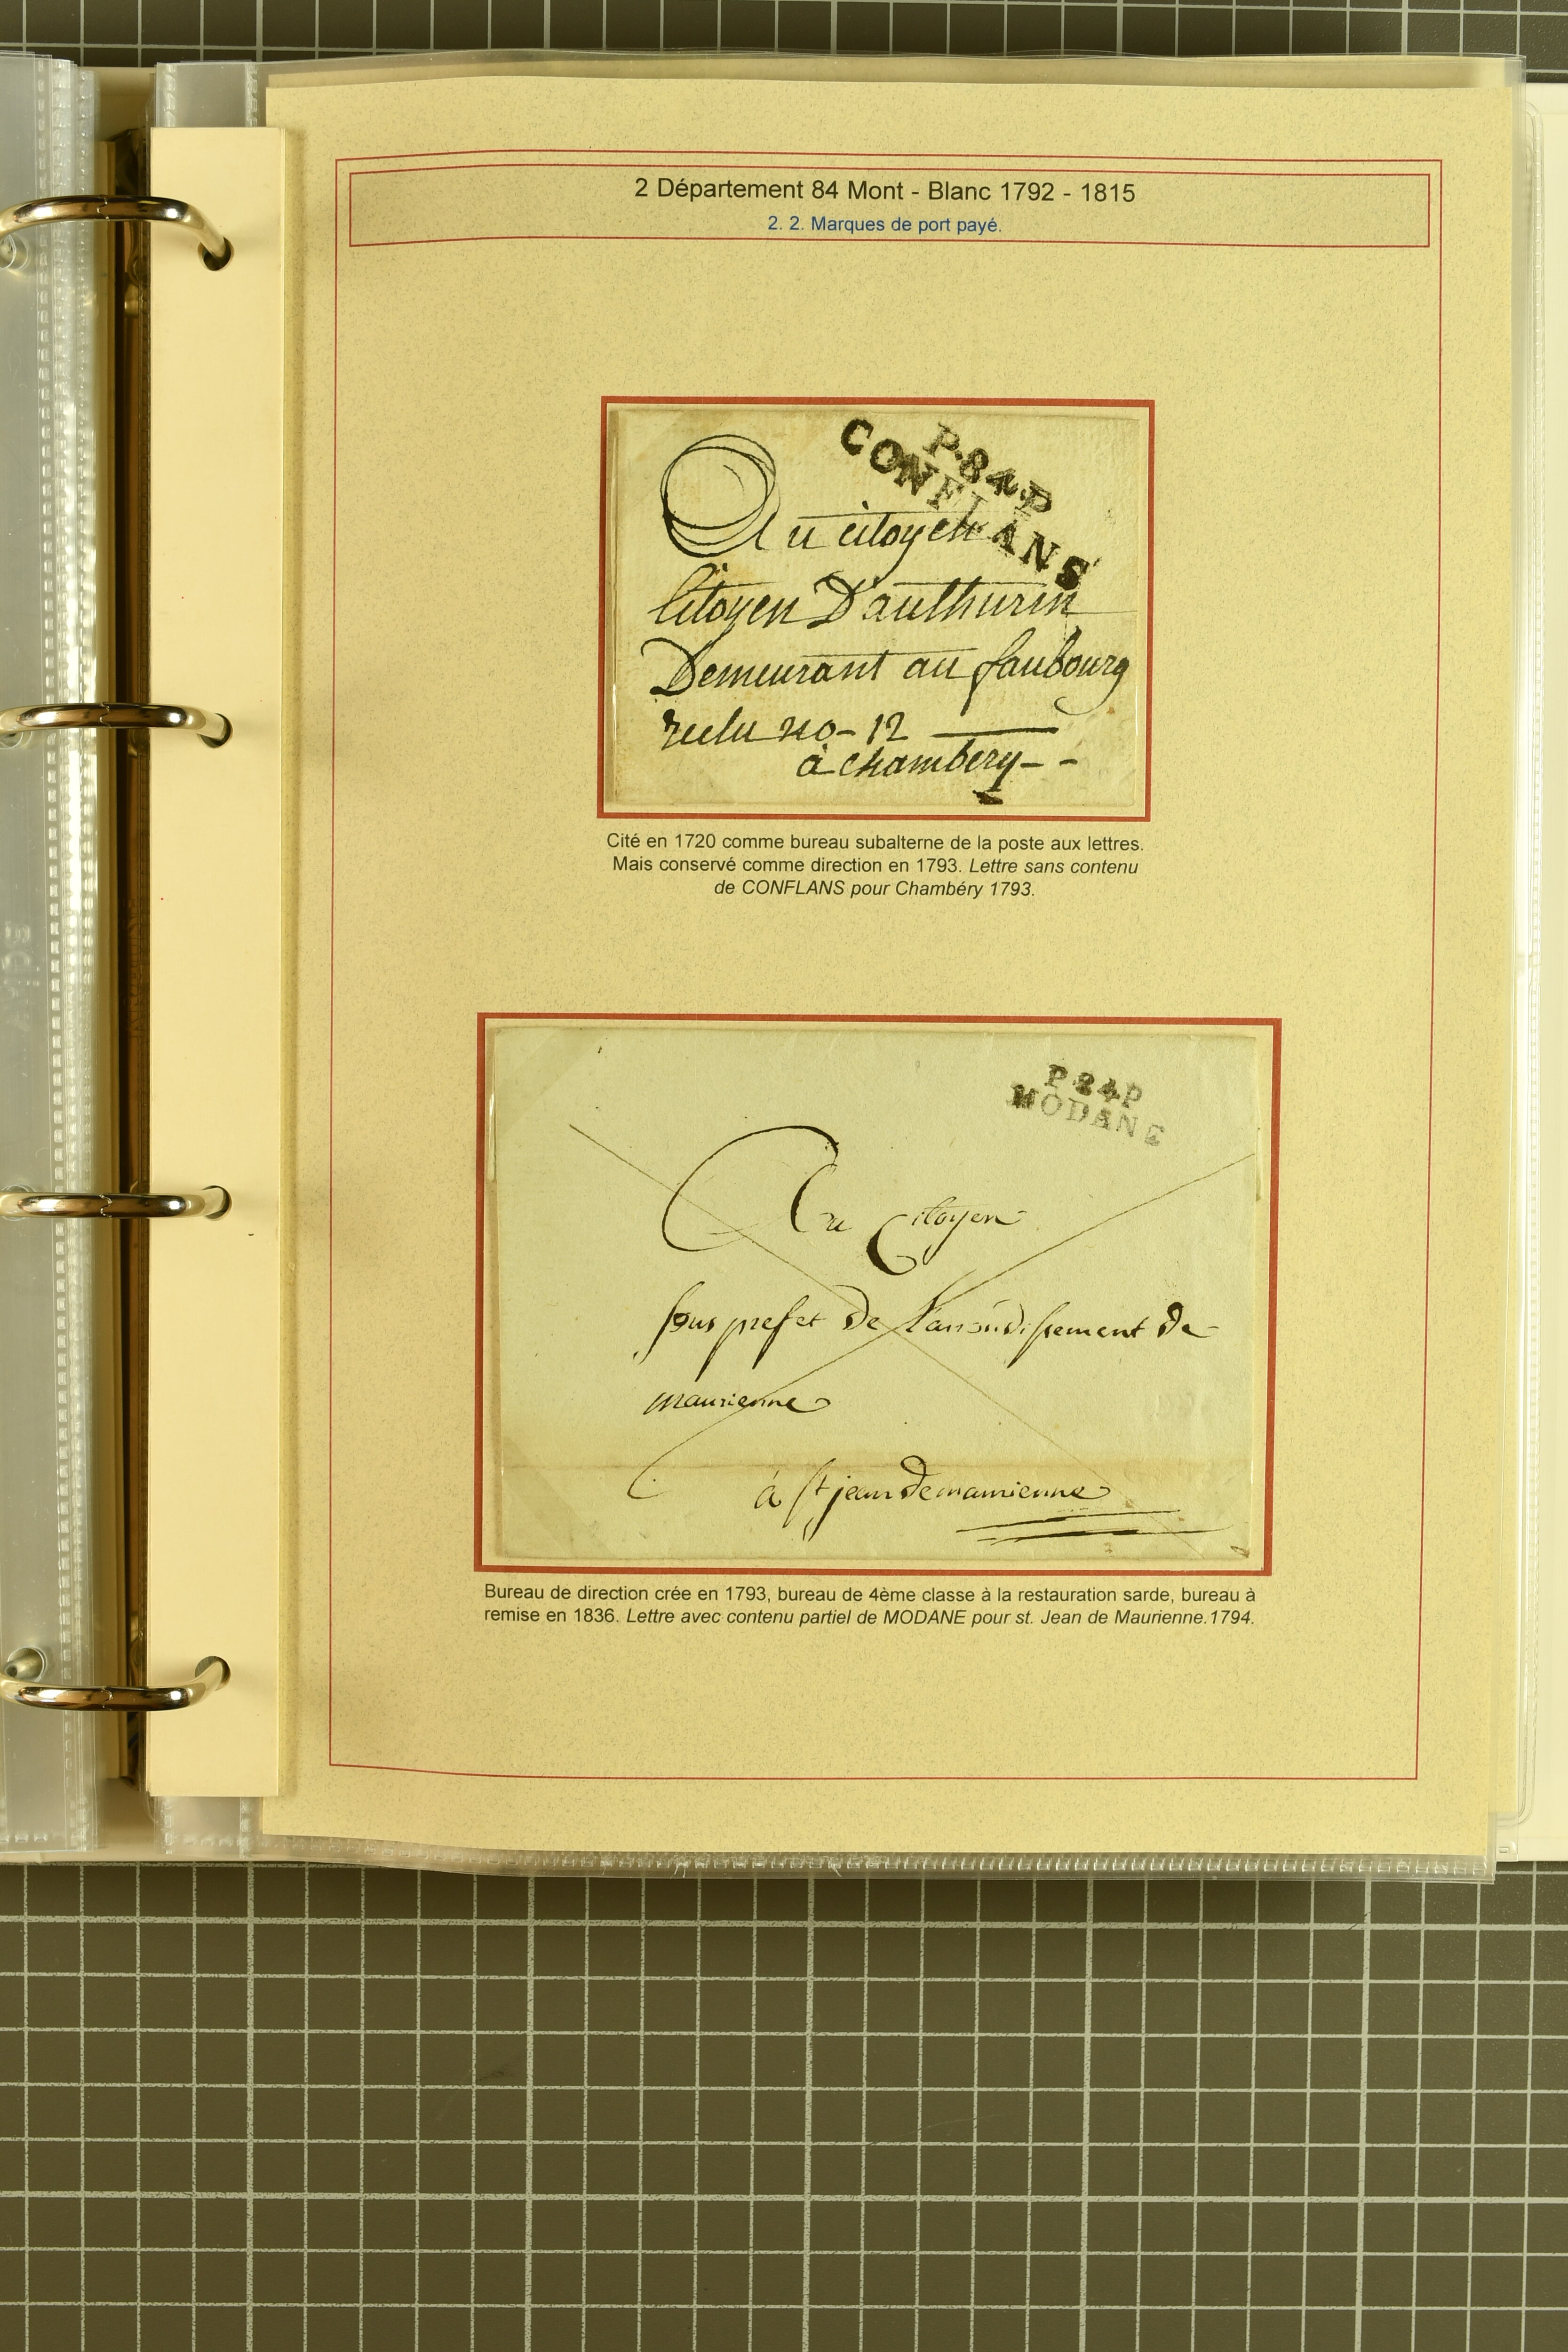 2 Département 84 Mont - Blanc 1792 - 1815
2. 2. Marques de port payé.
P.84.P
CONFLANS
Au citoyen
Citoyen D'authurin
Demeurant au faubourg
reclu no- 12
à chambery - -
Cité en 1720 comme bureau subalterne de la poste aux lettres.
Mais conservé comme direction en 1793. Lettre sans contenu
de CONFLANS pour Chambéry 1793.
P.84.P
MODANE
Au Citoyen
sous prefet de l'arrondissement de
maurienne
à st jean de maurienne
Bureau de direction crée en 1793, bureau de 4ème classe à la restauration sarde, bureau à
remise en 1836. Lettre avec contenu partiel de MODANE pour st. Jean de Maurienne.1794.